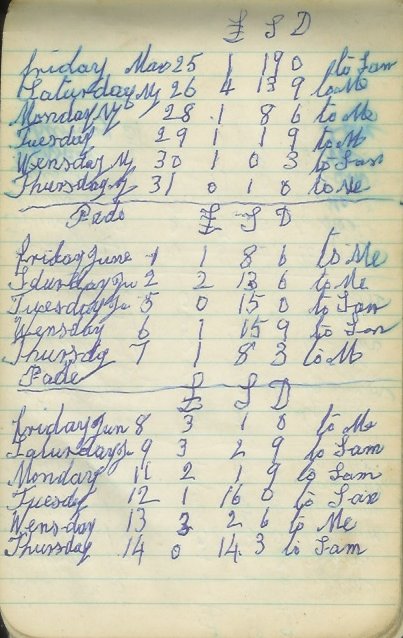 £ S D
Friday May 25 1 19 0 to Sam
Saturday My 26 4 13 9 to Me
Monday My 28 1 8 6 to Me
Tuesday 29 1 1 9 to M
Wensday M 30 1 0 3 to Sam
Thursday My 31 0 1 0 to Me
Pade £ S D
Friday June 1 1 8 6 to Me
Saturday Ju 2 2 13 6 to Me
Tuesday Ju 5 0 15 0 to Sam
Wensday 6 1 15 9 to Sam
Thursdy 7 1 8 3 to M
Pade
£ S D
Friday Jun 8 3 1 0 to Me
Saturday Ju 9 3 2 9 to Sam
Monday 11 2 1 9 to Sam
Tuesdy 12 1 16 0 to Sam
Wensday 13 3 2 6 to Me
Thursday 14 0 14 3 to Sam